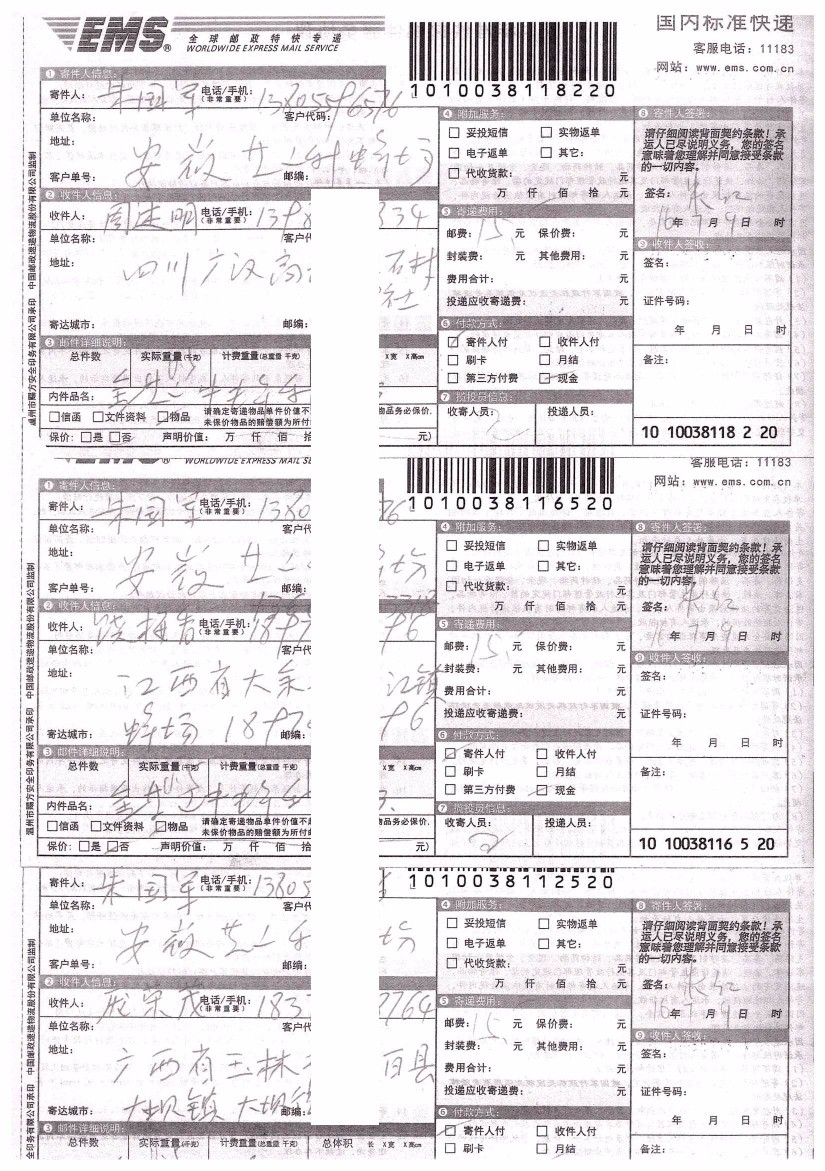 EMS 全球邮政特快专递
WORLDWIDE EXPRESS MAIL SERVICE
国内标准快递
客服电话：11183
网站：www.ems.com.cn
1010038118220
温州市赣方安全印务有限公司承印 中国邮政速递物流股份有限公司监制
❶寄件人信息：
寄件人：朱国军 电话/手机：
(非常重要)
单位名称： 客户代码：
地址：
安薇
客户单号： 邮编：
❷收件人信息：
收件人：周建明 电话/手机：
(非常重要) 334
单位名称： 客户代
地址：
四川广汉 石
社
寄达城市： 邮编：
❸邮件详细说明：
总件数 实际重量(千克) 计费重量(总重量 千克) X宽 X高cm
0.5
内件品名：
□信函 □文件资料 ☑物品 请确定寄递物品单件价值不 物品务必保价，
未保价物品的赔偿额为所付
保价：□是 □否 声明价值： 万 仟 佰 拾 元)
❹附加服务：
□ 妥投短信 □ 实物返单
□ 电子返单 □ 其它：
□ 代收货款： 元
万 仟 佰 拾 元
❺寄递费用：
邮费：15 元 保价费： 元
封装费： 元 其他费用： 元
费用合计： 元
投递应收寄递费： 元
❻付款方式：
☑ 寄件人付 □ 收件人付
□ 刷卡 □ 月结
□ 第三方付费 ☑ 现金
❼揽投员信息：
收寄人员： 投递人员：
❽寄件人签署：
请仔细阅读背面契约条款！承
运人已尽说明义务，您的签名
意味着您理解并同意接受条款
的一切内容。
签名：
16年 7月 9日 时
❾收件人签收：
签名：
证件号码：
年 月 日 时
备注：
10 10038118 2 20
EMS WORLDWIDE EXPRESS MAIL SE
客服电话：11183
网站：www.ems.com.cn
1010038116520
温州市赣方安全印务有限公司承印 中国邮政速递物流股份有限公司监制
❶寄件人信息：
寄件人：朱国军 电话/手机：1380
(非常重要)
单位名称： 客户代
地址：
安薇
客户单号： 邮编：
❷收件人信息：
收件人：饶梅香 电话/手机：
(非常重要)
单位名称： 客户代
地址：
江西省大余 江镇
寄达城市：蜂场 邮编：
❸邮件详细说明：
总件数 实际重量(千克) 计费重量(总重量 千克) X宽 X高cm
0.5
内件品名：
□信函 □文件资料 ☑物品 请确定寄递物品单件价值不 物品务必保价，
未保价物品的赔偿额为所付
保价：□是 ☑否 声明价值： 万 仟 佰 拾 元)
❹附加服务：
□ 妥投短信 □ 实物返单
□ 电子返单 □ 其它：
□ 代收货款： 元
万 仟 佰 拾 元
❺寄递费用：
邮费：15 元 保价费： 元
封装费： 元 其他费用： 元
费用合计： 元
投递应收寄递费： 元
❻付款方式：
☑ 寄件人付 □ 收件人付
□ 刷卡 □ 月结
□ 第三方付费 ☑ 现金
❼揽投员信息：
收寄人员： 投递人员：
❽寄件人签署：
请仔细阅读背面契约条款！承
运人已尽说明义务，您的签名
意味着您理解并同意接受条款
的一切内容。
签名：
16年 7月 9日 时
❾收件人签收：
签名：
证件号码：
年 月 日 时
备注：
10 10038116 5 20
1010038112520
全印务有限公司承印 中国邮政速递物流股份有限公司监制
寄件人：朱国军 电话/手机：13805
(非常重要)
单位名称： 客户
地址：
安薇
客户单号： 邮编：
❷收件人信息：
收件人：庞荣茂 电话/手机：183
(非常重要) 7764
单位名称： 客户
地址：
广西省玉林 白县
寄达城市：大坝镇 大坝 邮编
❸邮件详细说明：
总件数 实际重量(千克) 计费重量(总重量 千克) 总体积 长 X宽 X高cm
❹附加服务：
□ 妥投短信 □ 实物返单
□ 电子返单 □ 其它：
□ 代收货款： 元
万 仟 佰 拾 元
❺寄递费用：
邮费：15 元 保价费： 元
封装费： 元 其他费用： 元
费用合计： 元
投递应收寄递费： 元
❻付款方式：
☑ 寄件人付 □ 收件人付
□ 刷卡 □ 月结
❽寄件人签署：
请仔细阅读背面契约条款！承
运人已尽说明义务，您的签名
意味着您理解并同意接受条款
的一切内容。
签名：
16年 7月 9日 时
❾收件人签收：
签名：
证件号码：
年 月 日 时
备注：